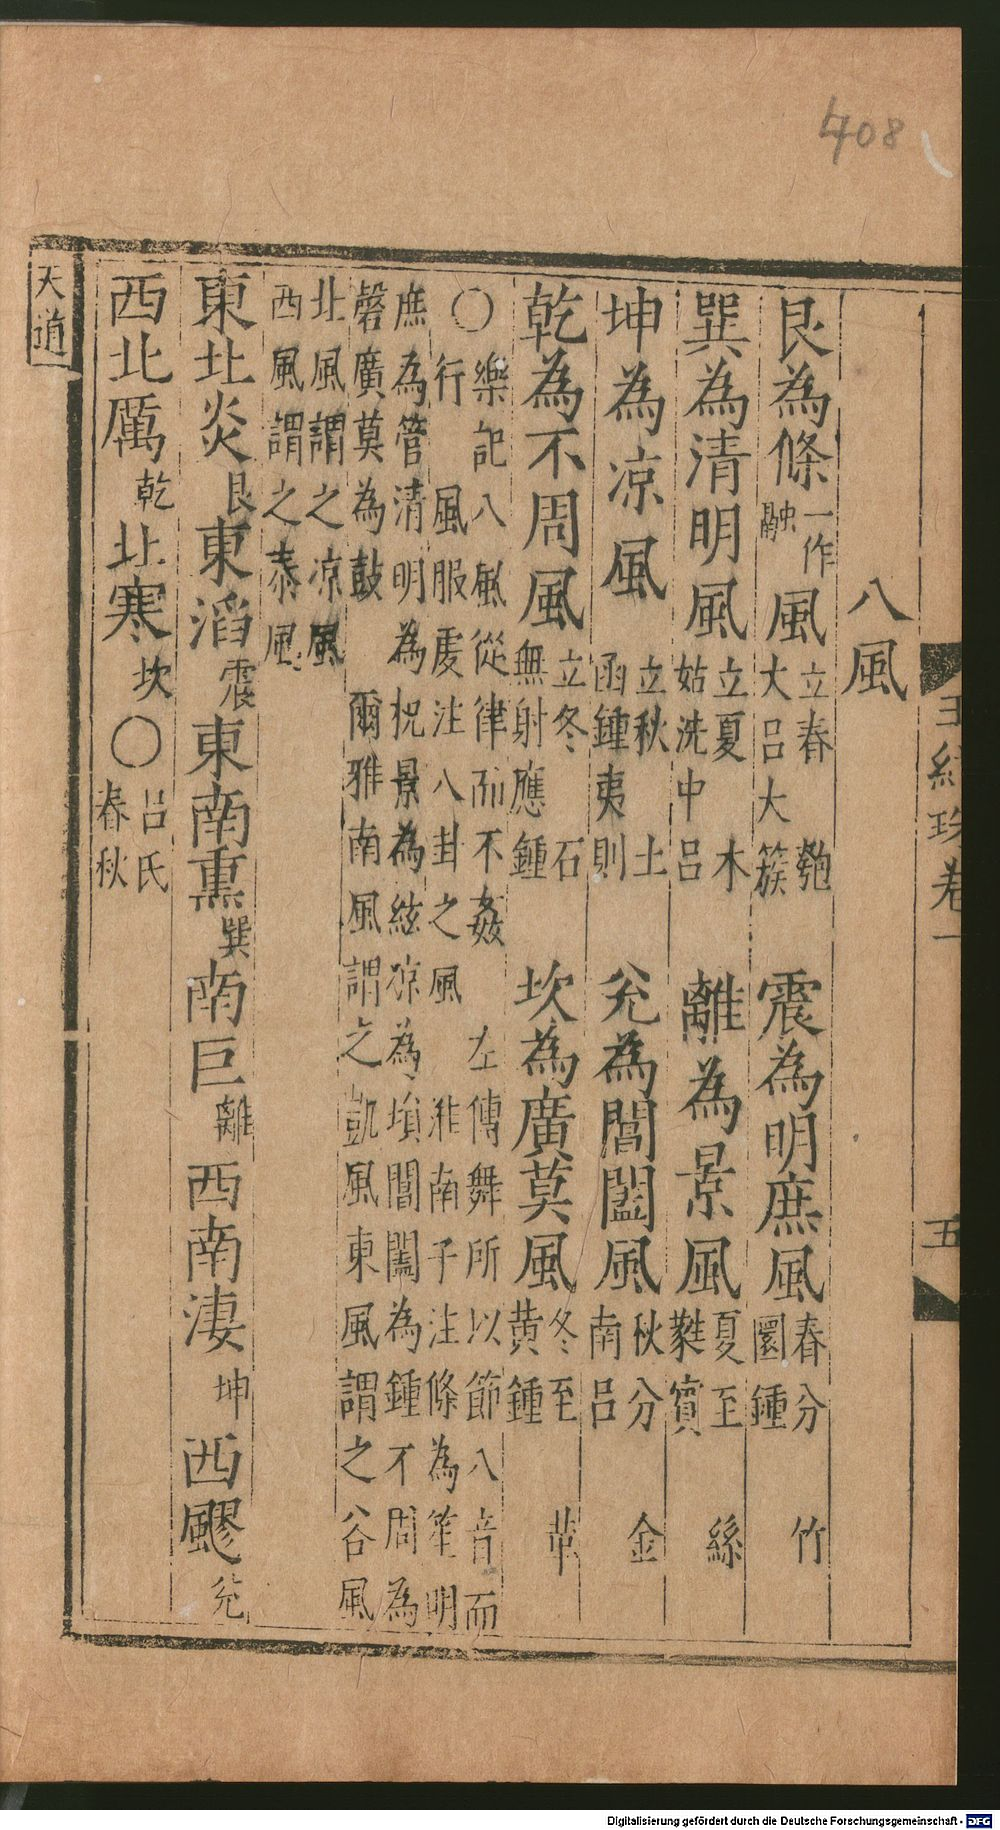 408
珠卷一 五
八風
艮為條一作融風立春 匏大呂大簇 震為明庶風春分 竹圜鍾
巽為清明風立夏 木姑洗中呂 離為景風夏至 絲蕤賓
坤為凉風立秋 土函鍾夷則 兊為閶闔風秋分 金南呂
乾為不周風立冬 石無射應鍾 坎為廣莫風冬至 革黃鍾
○樂記八風從律而不姦 左傳舞所以節八音而
行 風服虔注八卦之風 淮南子注條為笙明
庶為管清明為柷景為絃凉為塤閶闔為鍾不周為
磬廣莫為鼓 爾雅南風謂之凱風東風謂之谷風
北風謂之凉風
西風謂之泰風
東北炎艮東滔震東南熏巽南巨離西南淒坤西飂兊
西北厲乾北寒坎○呂氏春秋
天道
Digitalisierung gefördert durch die Deutsche Forschungsgemeinschaft - DFG